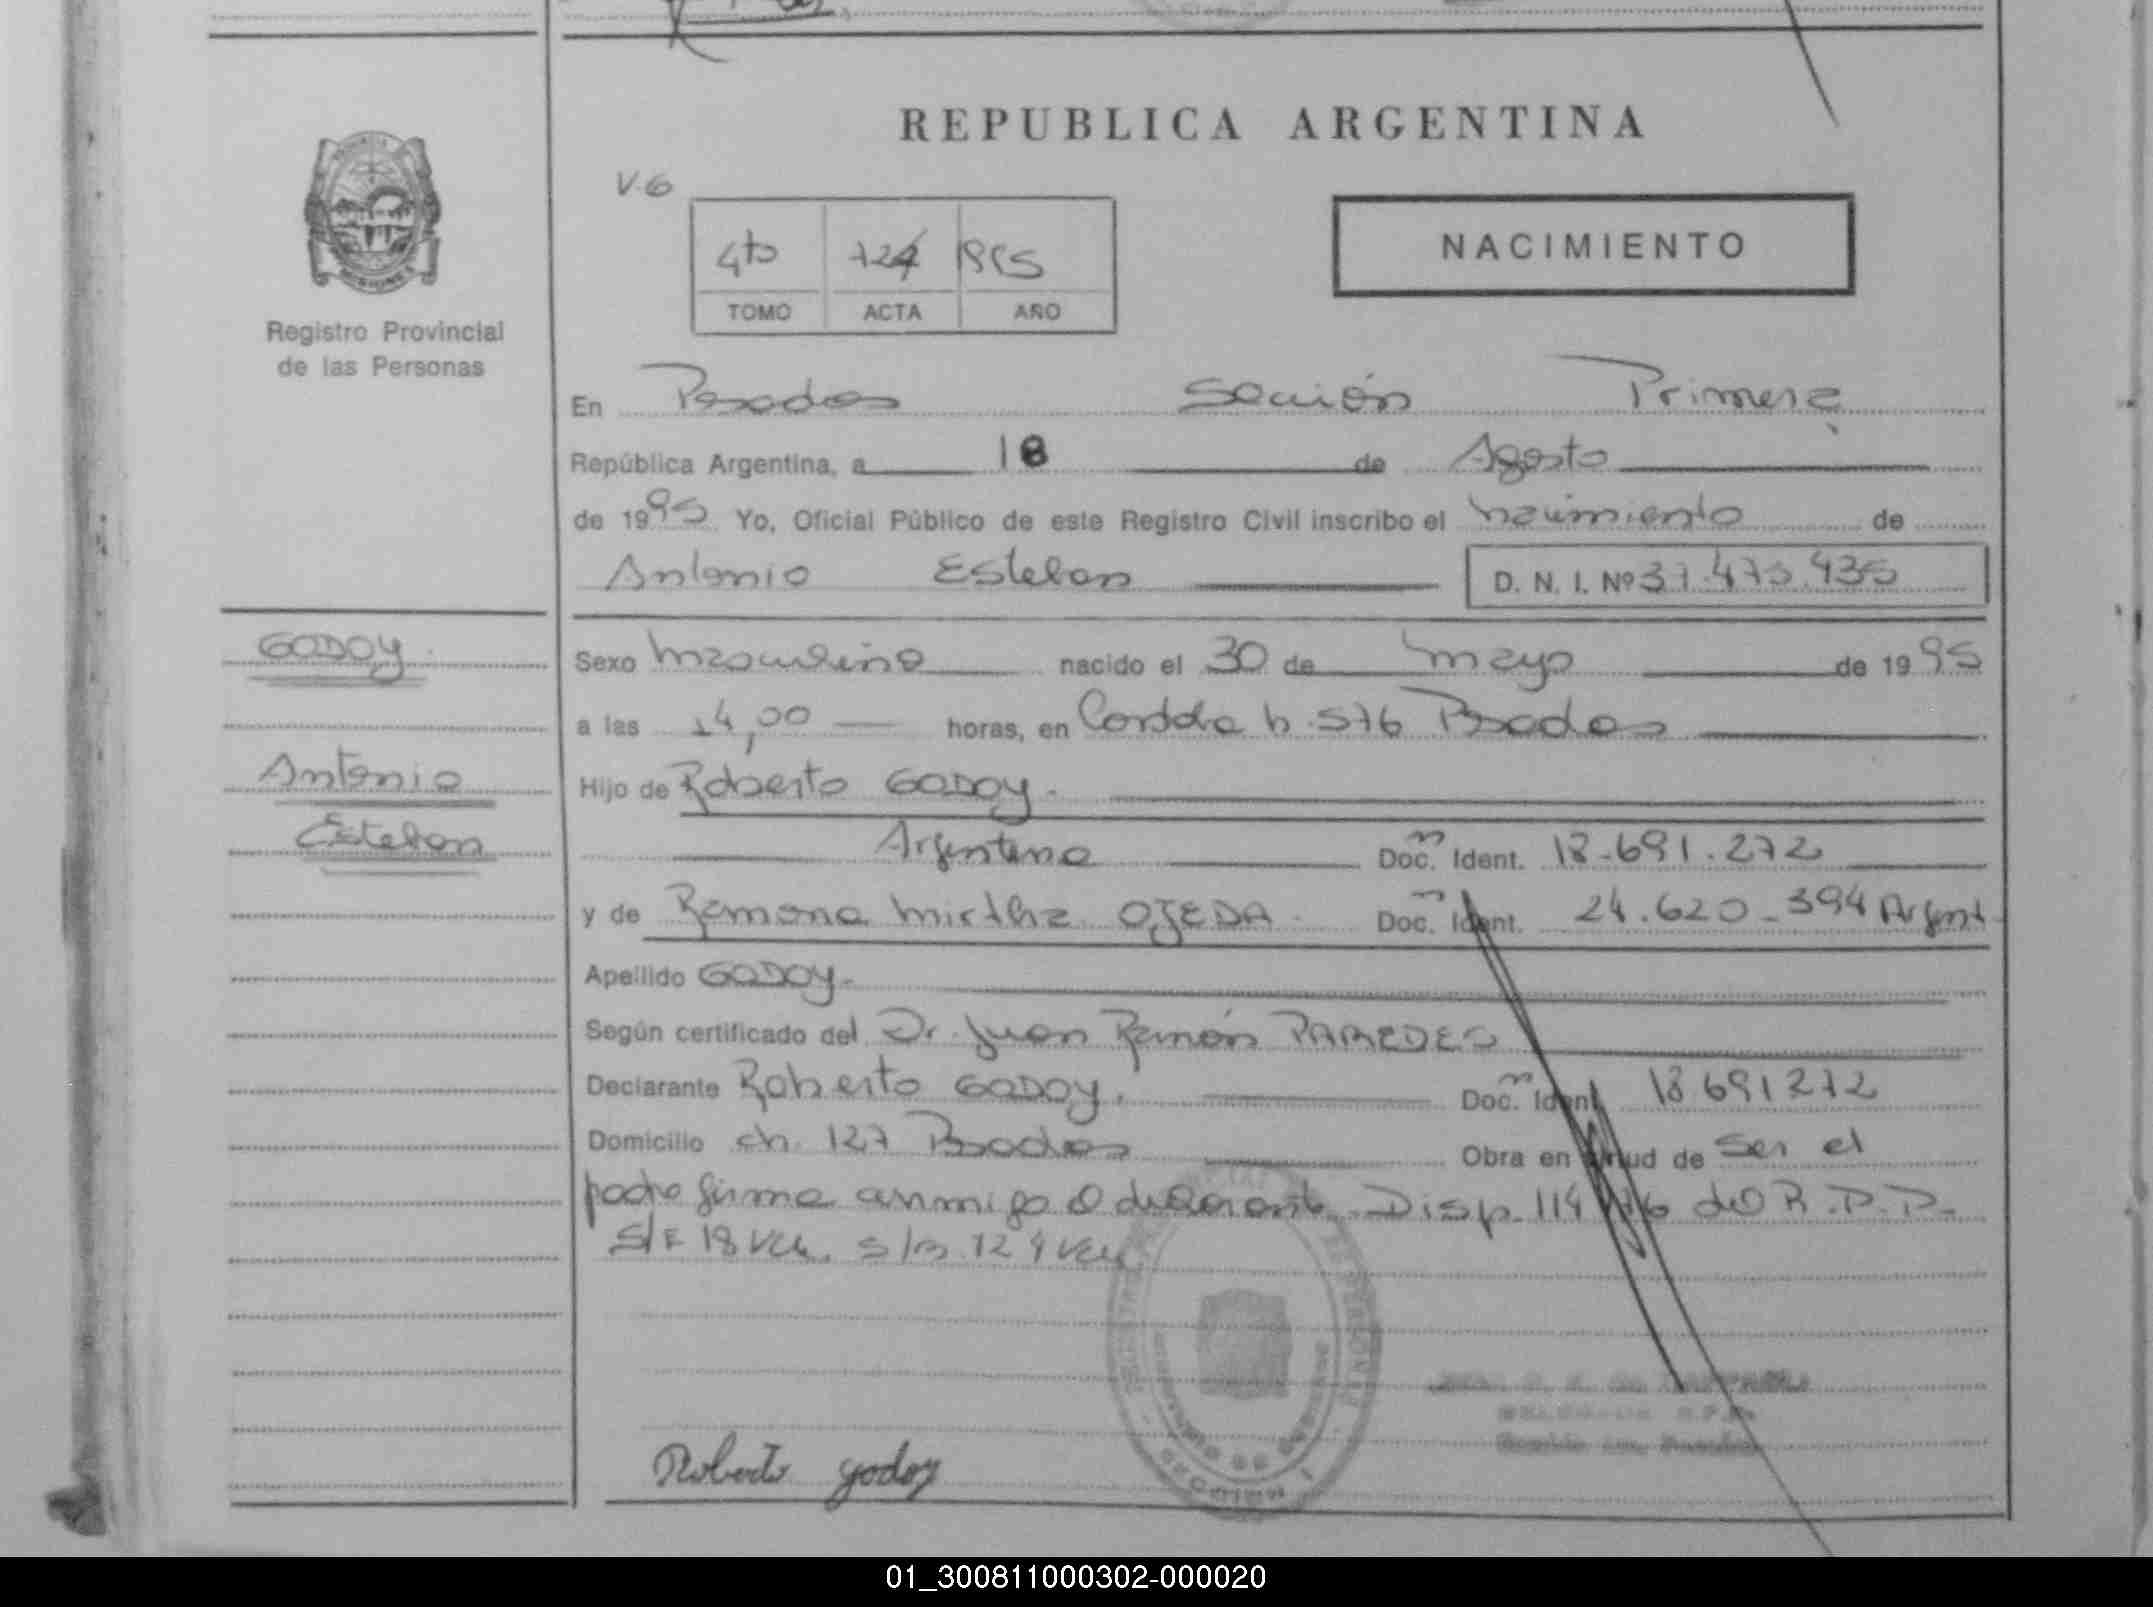 REPUBLICA ARGENTINA
V.6
4to 124 1995
TOMO ACTA AÑO
NACIMIENTO
Registro Provincial
de las Personas
En Posadas Sección Primera
República Argentina, a 18 de Agosto
de 1995 Yo, Oficial Público de este Registro Civil inscribo el nacimiento de
Antonio Esteban D. N. I. Nº 37.475.435
GODOY.
Sexo masculino nacido el 30 de mayo de 1995
a las 14,00 horas, en Cordoba n. 576 Posadas
Antonio
Hijo de Roberto GODOY.
Esteban
Argentino Doc. Ident. 18.691.272
y de Ramona mirtha OJEDA. Doc. Ident. 24.620.394 Argent
Apellido GODOY.
Según certificado del Dr. Juan Ramón PAREDES
Declarante Roberto GODOY. Doc. Ident. 18 691272
Domicilio ch. 127 Posadas Obra en virtud de ser el
padre firma conmigo el declarante. Disp. 114/76 del R.P.P.
Roberto godoy
01_300811000302-000020